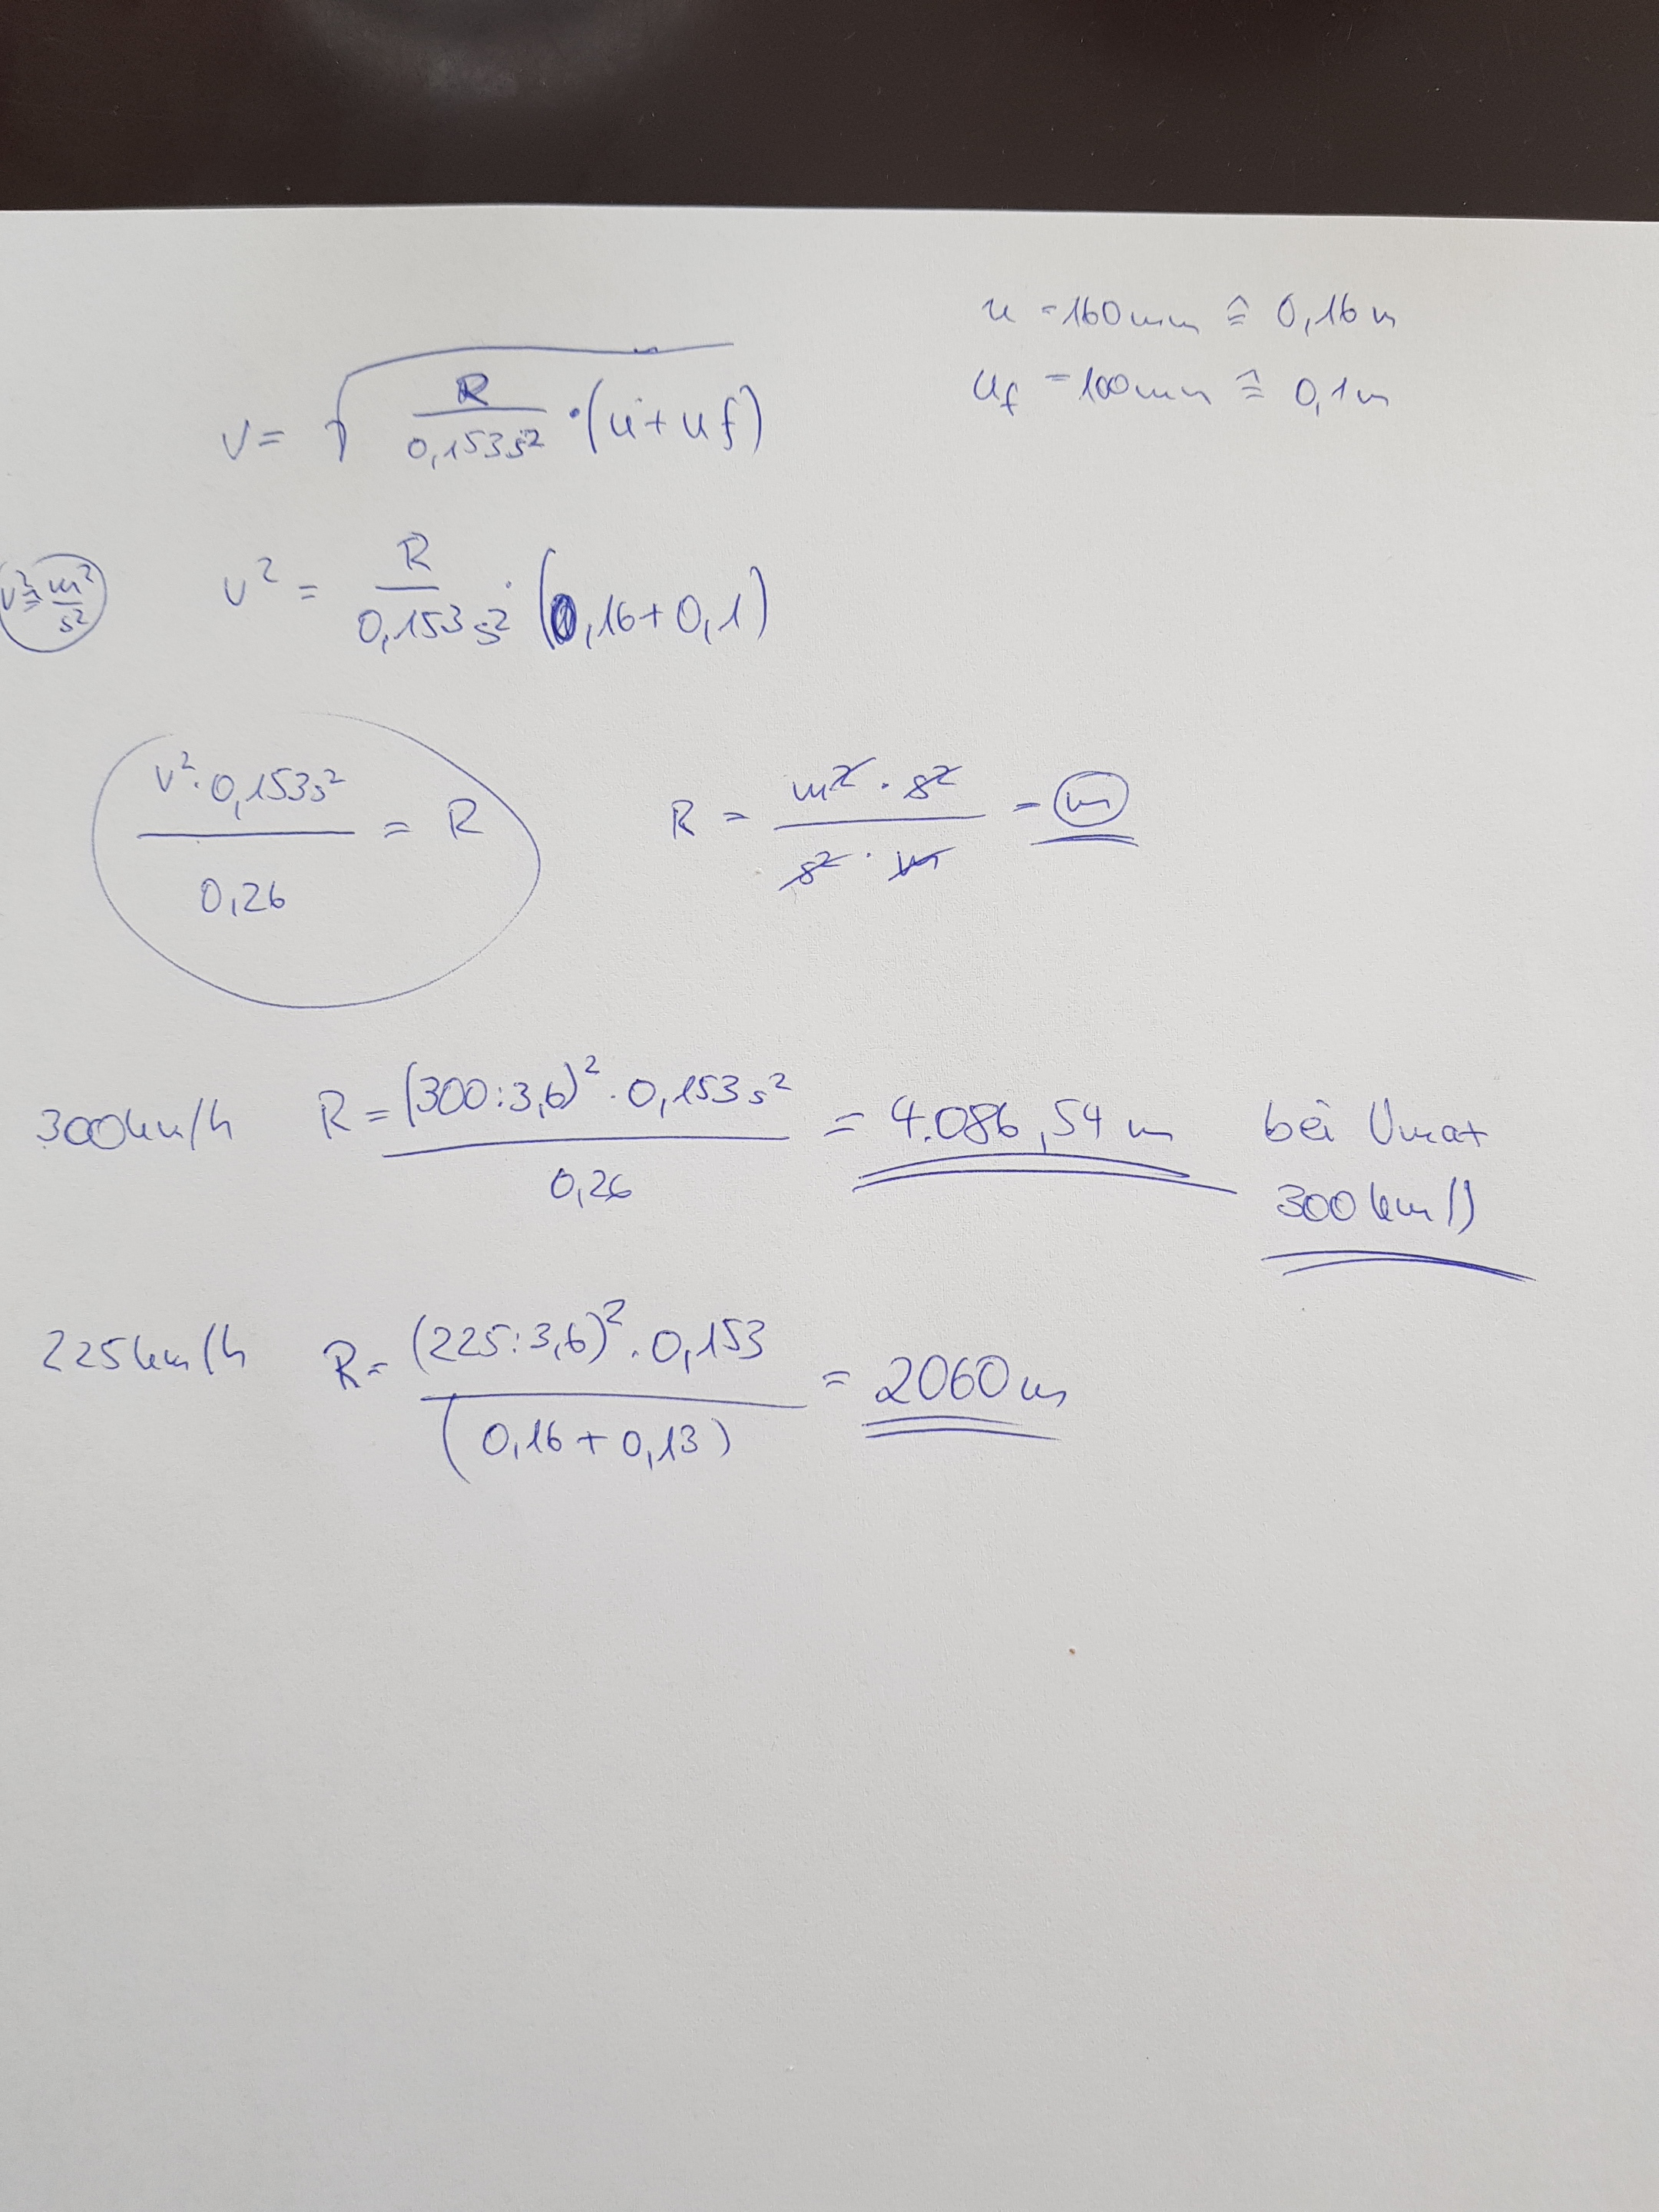 u = 160mm ≙ 0,16m
uf = 100mm ≙ 0,1m
v = √ R / 0,153s² · (u + uf)
v² ≙ m² / s²
v² = R / 0,153s² · (0,16 + 0,1)
v² · 0,153s² / 0,26 = R
R = m² · s² / s² · m = m
300km/h R = (300:3,6)² · 0,153s² / 0,26 = 4.086,54 m bei Vmax
300km/h
225km/h R = (225:3,6)² · 0,153 / (0,16 + 0,13) = 2060m